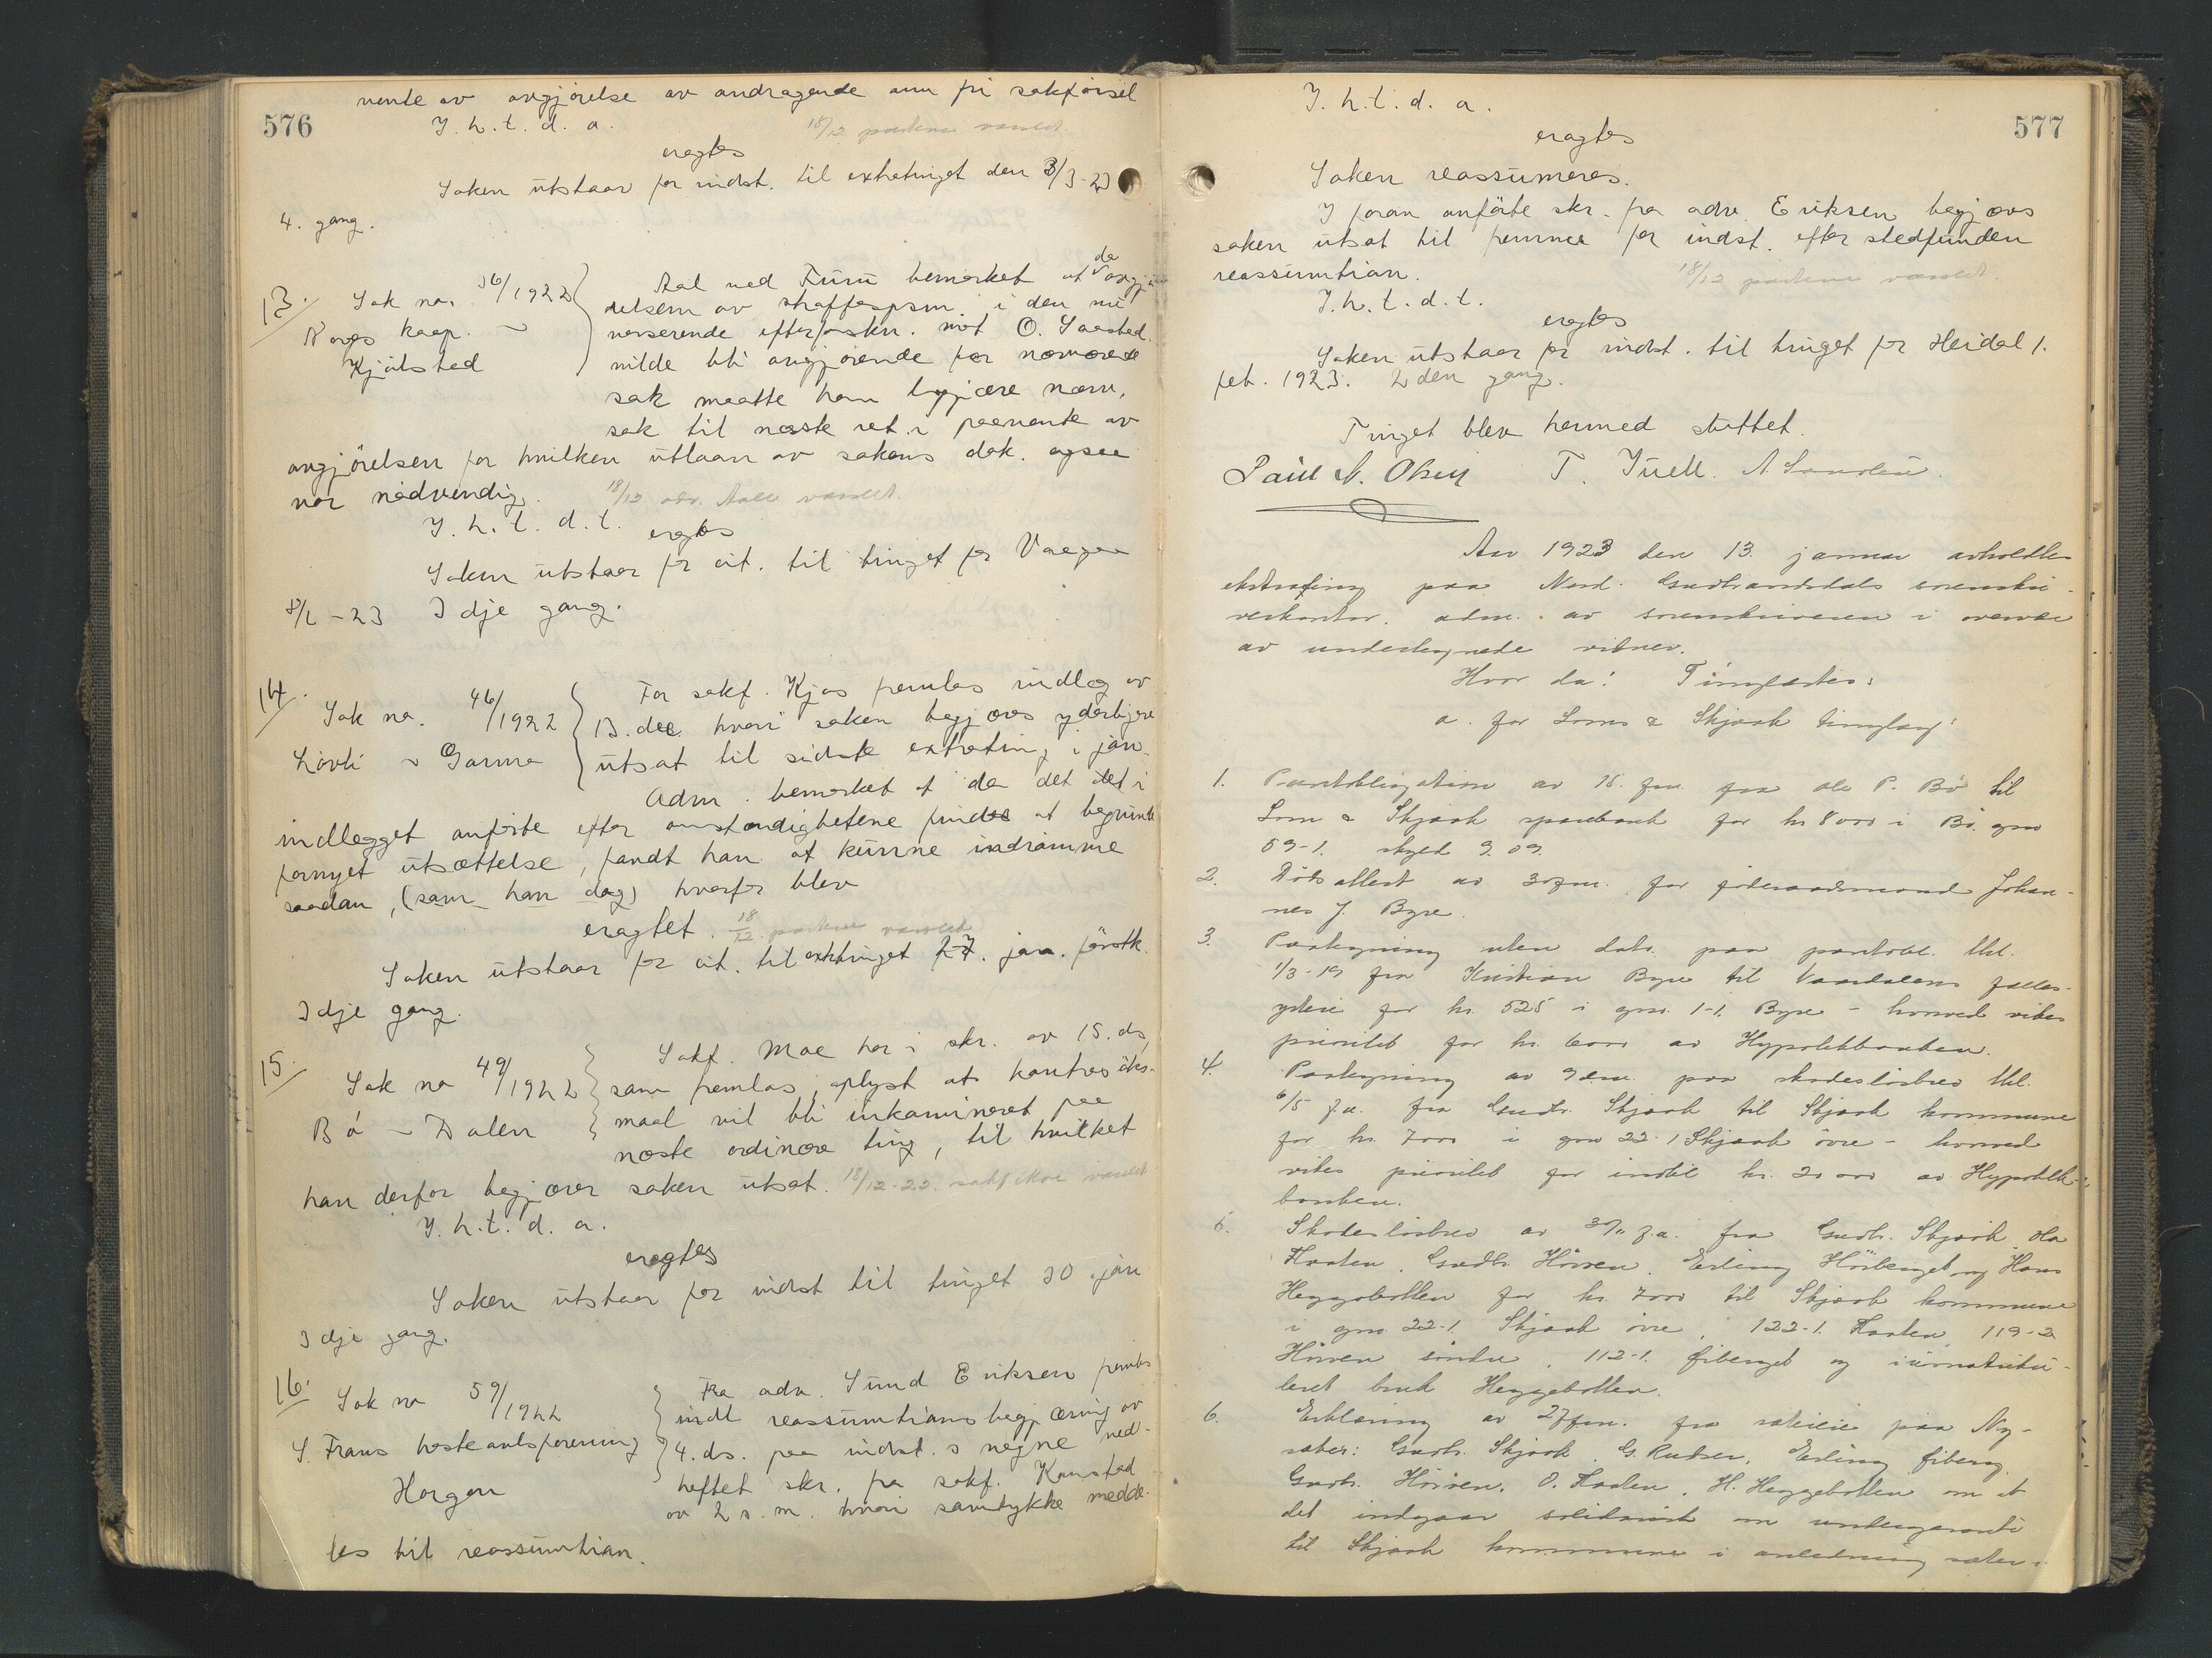 576
vente av avgjørelse av andragende om fri sakførsel
I. h. t. d. a. 18/12 partene varslet.
eragtes
Saken utstaar for indst. til extratinget den 3/3-23
4. gang.
13. Sak no. 36/1922
Kjølstad
Aal ved Furu bemerket at da avgjø
relsen av straffespsm. i den nu
verserende efterforskn. mot O.
vilde bli avgjørende for nærværende
sak maatte han begjære nærv.
sak til næste ret i paavente av
avgjørelsen for hvilken utlaan av sakens dok. ogsaa
var nødvendig. 18/12 adv. Aall varslet.
I. h. t. d. t. eragtes
Saken utstaar for cit. til tinget for Vaage
8/2-23 3dje gang.
14. Sak no. 46/1922
Løvli ~ Garmo
For sakf. Kjos fremlas indlæg av
13. dec. hvori saken begjæres yderligere
utsat til sidste extrating i jan.
Adm. bemerket at da det det i
indlegget anførte efter omstændighetene findes at begrunde
fornyet utsættelse, fandt han at kunne indrømme
saadan, (som han dog) hvorfor blev
eragtet. 18/12 partene varslet
Saken utstaar for cit. til extratinget 27. jan. førstk.
3dje gang.
15. Sak no 49/1922
Bø ~ Dalen
Sakf. Moe har i skr. av 15. ds,
som fremlas, oplyst at kontrasøks-
maal vil bli inkamineret paa
næste ordinære ting, til hvilket
han derfor begjærer saken utsat. 18/12-22. sakf Moe varslet
I. h. t. d. a.
eragtes
Saken utstaar for indst til tinget 30. jan
3dje gang.
16. Sak no 59/1922
S. Frons hesteavlsforening ~
Horgen
Fra adv. Sund Eriksen fremlas
indl reassumtionsbegjæring av
4. ds. paa indst.s vegne ved-
heftet skr. fra sakf. Konstad
av 2 s. m. hvori samtykke medde-
les til reassumtion.
577
I. h. t. d. a.
eragtes
Saken reassumeres.
I foran anførte skr. fra adv. Eriksen begjæres
saken utsat til fremme for indst. efter stedfunden
reassumtion. 18/12 partene varslet
I. h. t. d. t.
eragtes
Saken utstaar for indst. til tinget for Heidal 1.
feb. 1923. 2den gang.
Tinget blev hermed sluttet.
Paul N. Olsen T. Juell. A. Sandbu.
Aar 1923 den 13. januar avholdtes
ekstrating paa Nord-Gudbrandsdals sorenskri-
verkontor. adm. av sorenskriveren i overvær
av undertegnede vidner.
Hvor da: Tinglæstes:
a. for Loms & Skjaak tinglag:
1. Pantobligation av 18. fm. fra Ole P. Bø til
Lom & Skjaak sparebank for kr 8000 i Bø gno
59-1. skyld 9.09.
2. Dødsattest av 30 fm. for føderaadsmand Johan-
nes J. Byre.
3. Paategning uten dato paa pantobl. tkl.
1/3-19 fra Kristian Byre til fælles-
for kr. 525 i gno. 1-1. Byre - hvorved vikes
prioritet for kr. 6000 av Hypotekbanken.
4. Paategning av 9 dm. paa skadesløsbrev tkl.
6/5 f.a. fra Gudbr. Skjaak til Skjaak kommune
for kr. 7000 i gno 22-1 Skjaak øvre - hvorved
vikes prioritet for indtil kr. 20000 av Hypotek-
banken.
5. Skadesløsbrev av 30/11 f.a. fra Gudbr. Skjaak, Ola
Flaaten, Gudbr. Hørven, Erling Fiberget og Hans
Heggebotten for kr. 7000 til Skjaak kommune
i gno. 22-1. Skjaak øvre, 122-1. Flaaten 119-2
Hørven søndre, 112-1. Fiberget og uomatriku-
leret bruk Heggebotten.
6. Erklæring av 27 fm. fra paa Ny-
sæter: Gudbr. Skjaak, G. Rudsen, Erling Fiberg,
Gudbr. Hørven, O. Flaaten, H. Heggebotten om at
det indgaar solidarisk om undergaranti
til Skjaak kommune i anledning sæter-